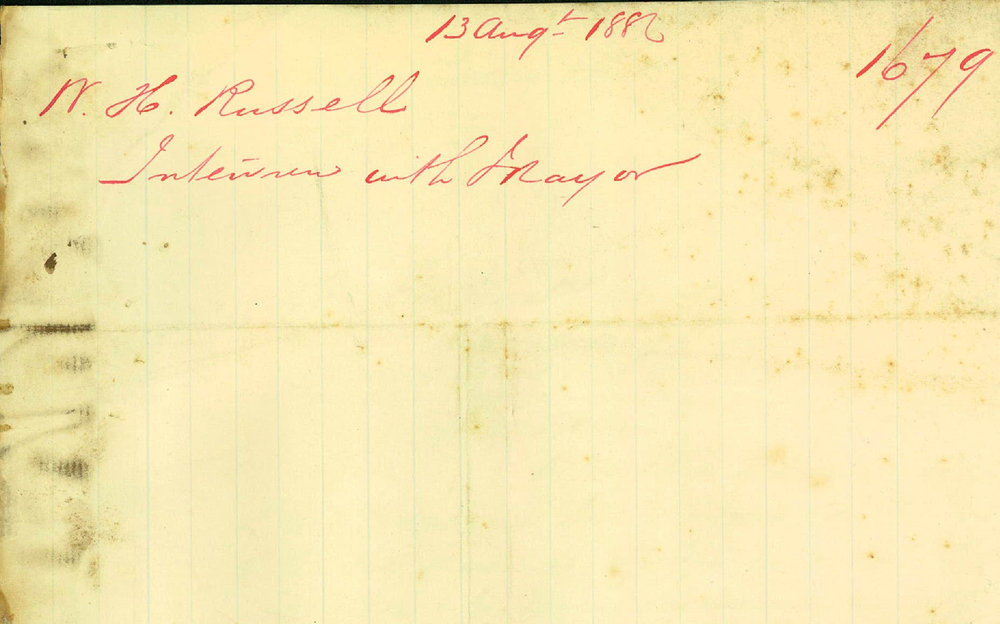 13 Augt 1886
1679
W. H. Russell
Interview with Mayor